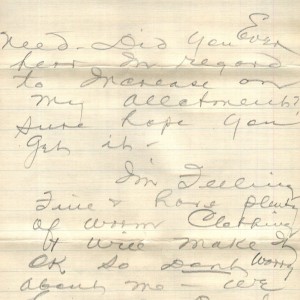 Need. Did you Ever
hear in regard
to increase on
my allotment?
sure hope you
Get it -
I'm Feeling
Fine & have plenty
of warm Clothing
It will make It
OK so Dont worry
about me - We